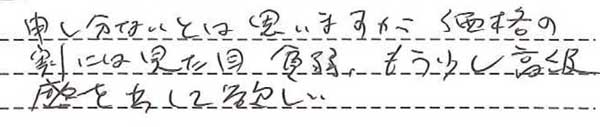 申し分ないとは思いますが 価格の
割には見た目 貧弱、もう少し高級
感を出して欲しい